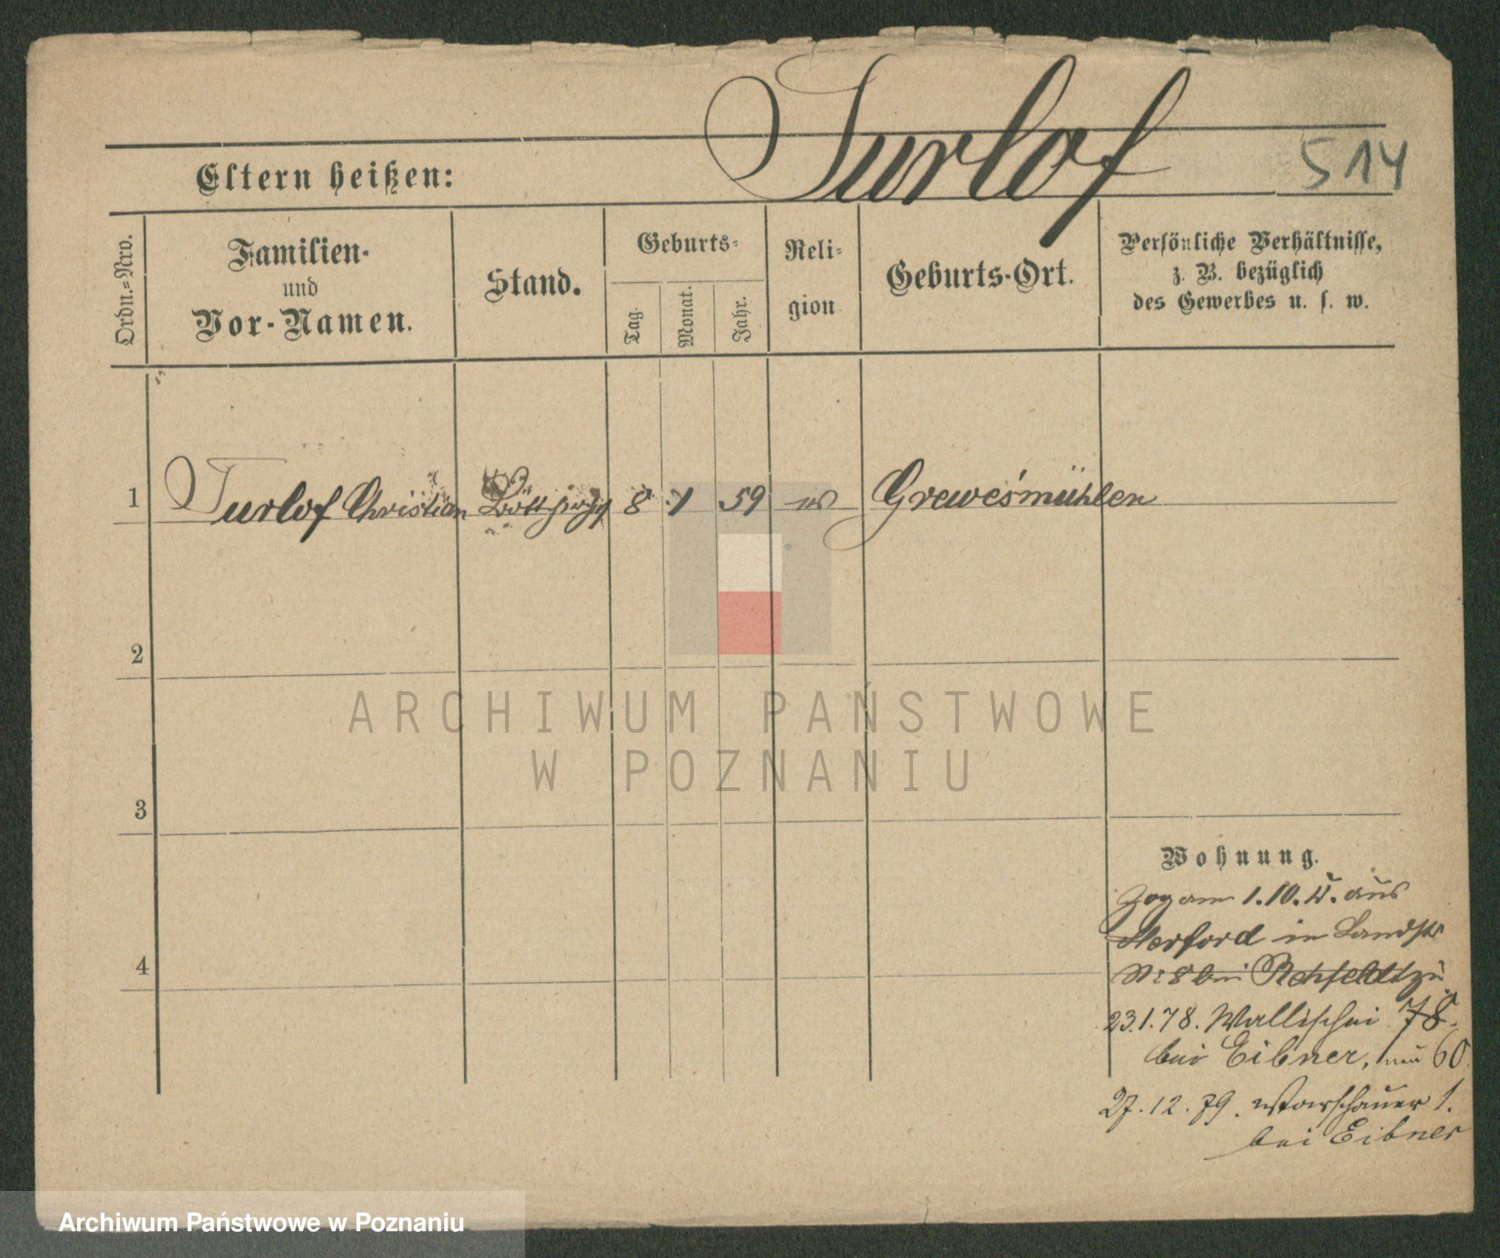 Turlof
514
Eltern heißen:
Ordn.-Nro.
Familien-
und
Vor-Namen.
Stand.
Geburts-
Tag.
Monat.
Jahr.
Reli-
gion
Geburts-Ort.
Persönliche Verhältnisse,
z. B. bezüglich
des Gewerbes u. s. w.
1 Turlof Christian 8 1 59 Grewesmühlen
2
ARCHIWUM PAŃSTWOWE
W POZNANIU
3
Wohnung.
Zog am 1.10. aus
Herford in Landstr
No 8 bei Rehfeldt
4
23.1.78. Wallischei 78.
bei Eibner, neu 60
27.12.79. Warschauer 1.
bei Eibner
Archiwum Państwowe w Poznaniu